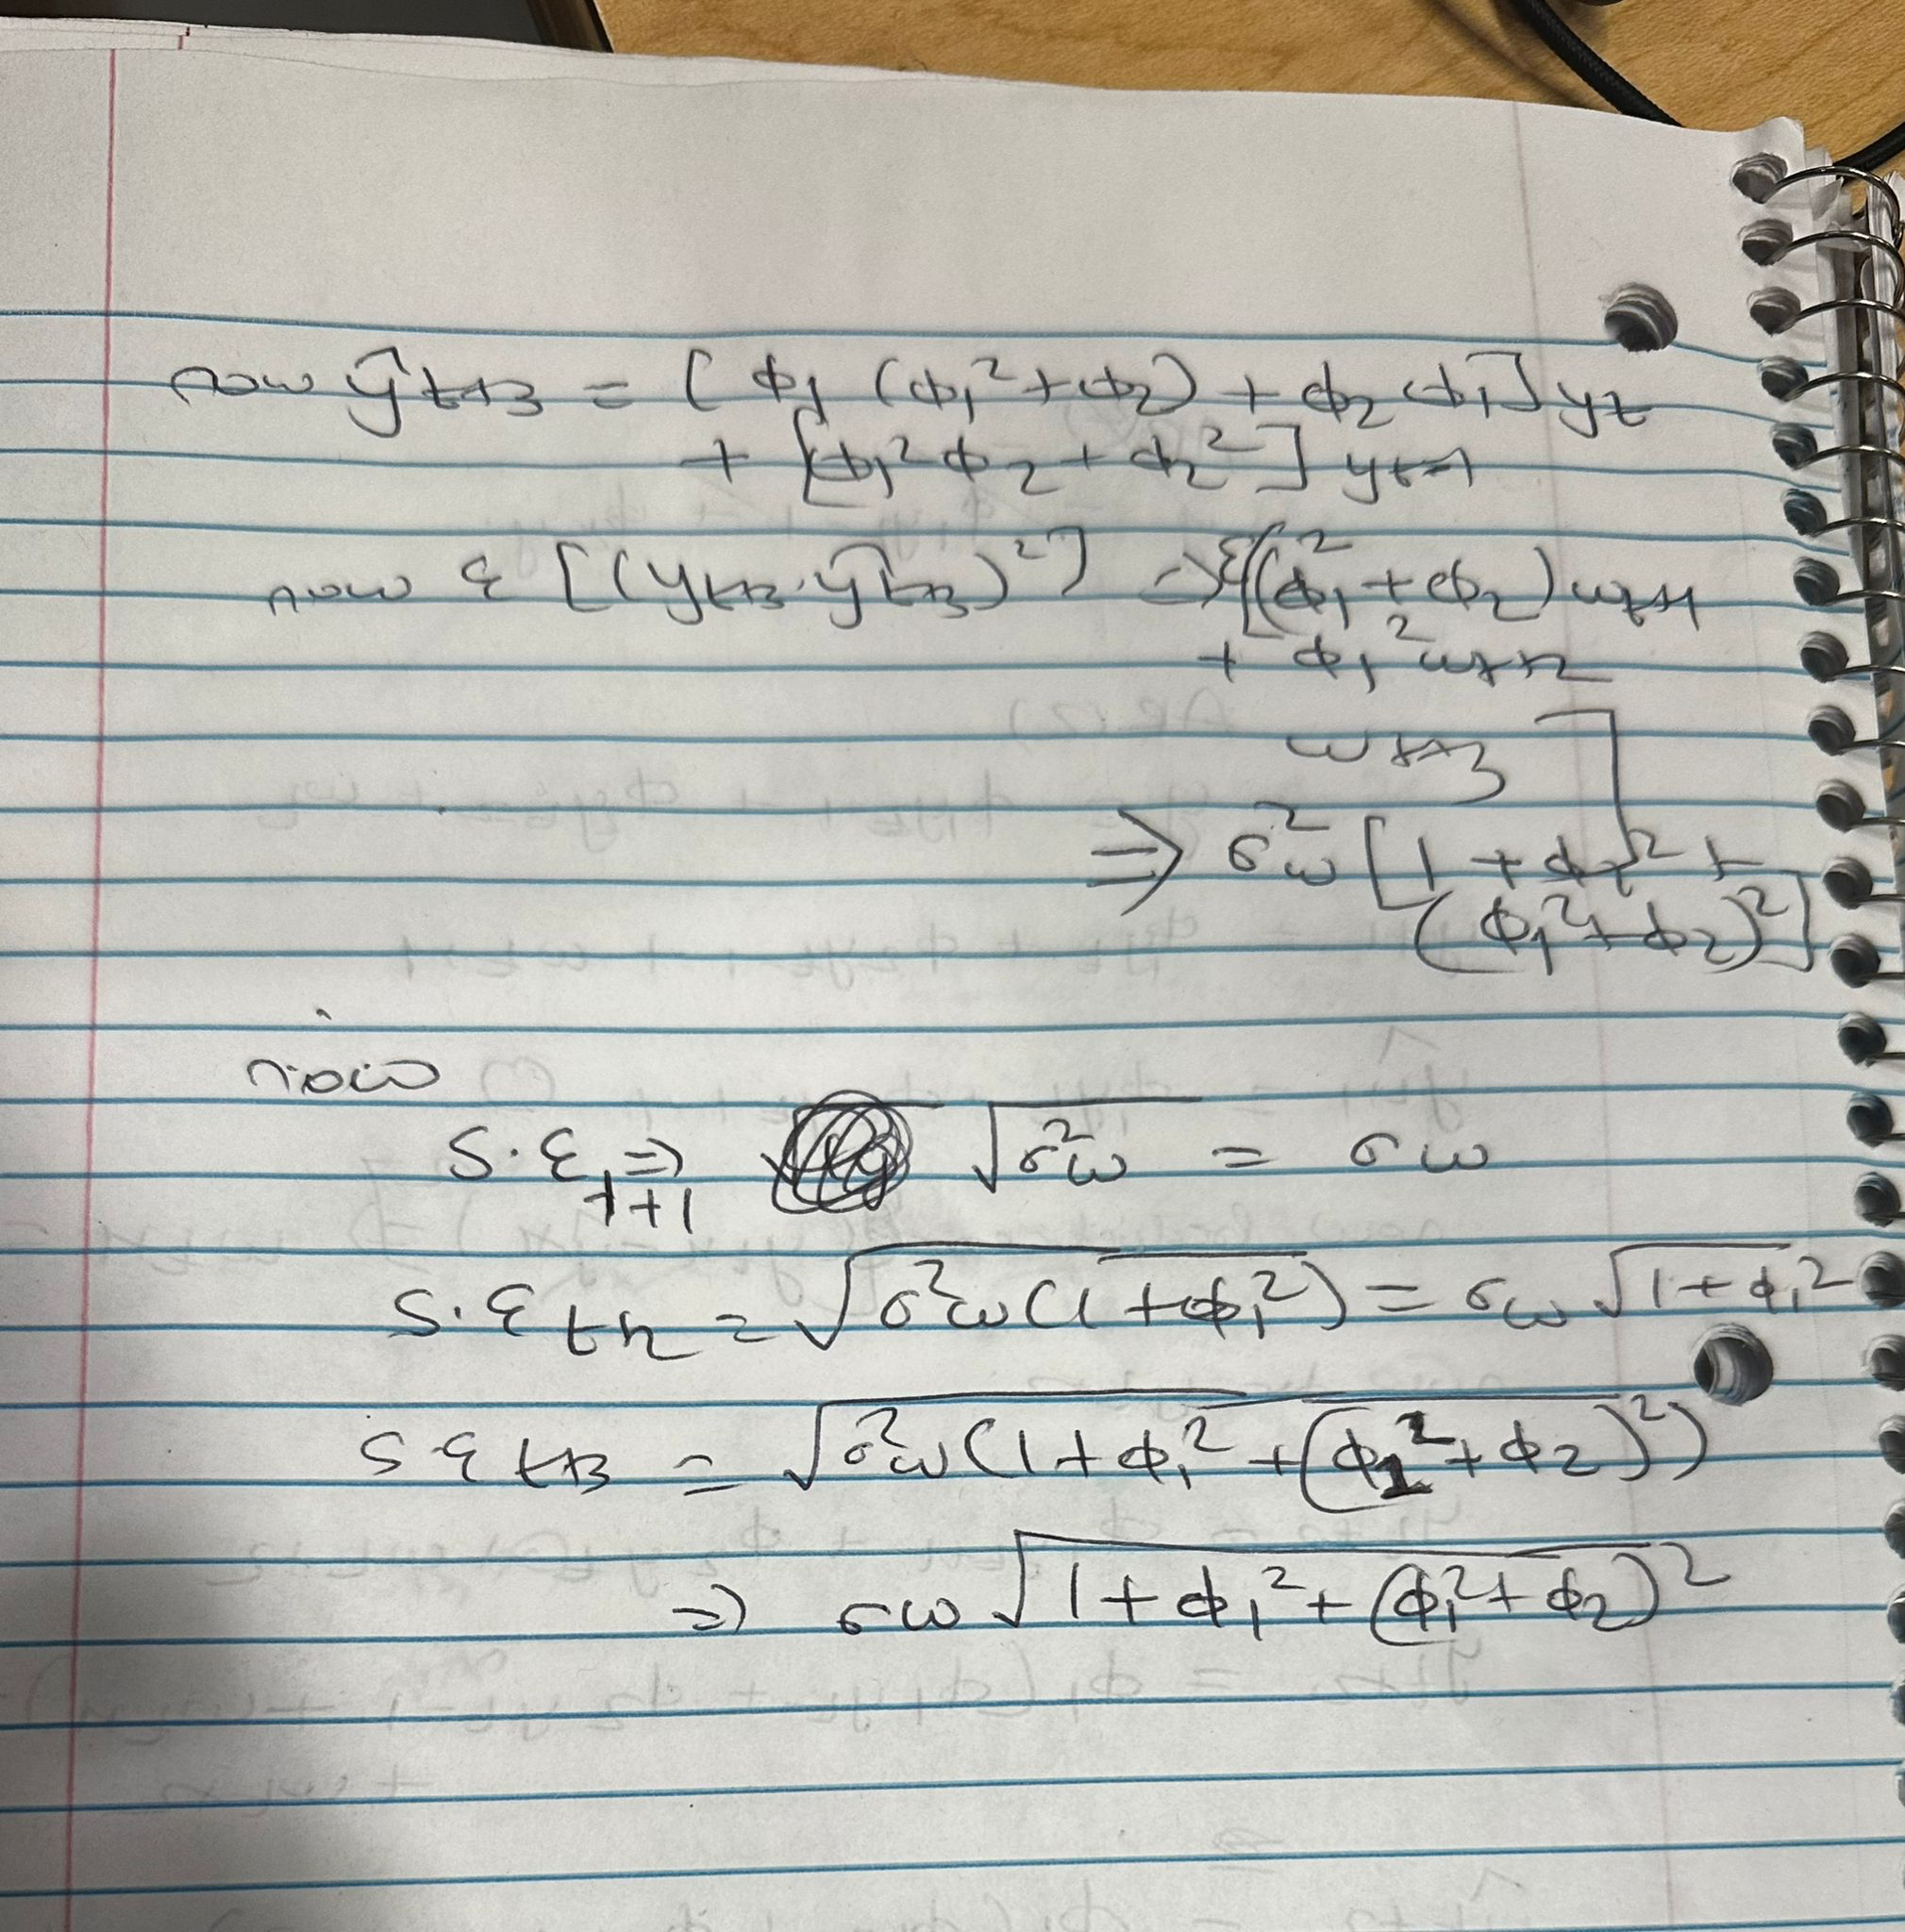 now ŷt+3 = [ϕ1 (ϕ1² + ϕ2) + ϕ2 ϕ1] yt
+ [ϕ1² ϕ2 + ϕ2²] yt-1
now ε [(yt+3 - ŷt+3)²] => ε[(ϕ1² + ϕ2) wt+1
+ ϕ1² wt+2
wt+3]
=> σ²w [1 + ϕ1² +
(ϕ1² + ϕ2)²]
now
S.E t+1 => √σ²w = σw
S.E t+2 = √σ²w(1+ϕ1²) = σw √1+ϕ1²
S E t+3 = √σ²w(1+ϕ1² + (ϕ1² + ϕ2)²)
=> σw √1+ϕ1² + (ϕ1² + ϕ2)²